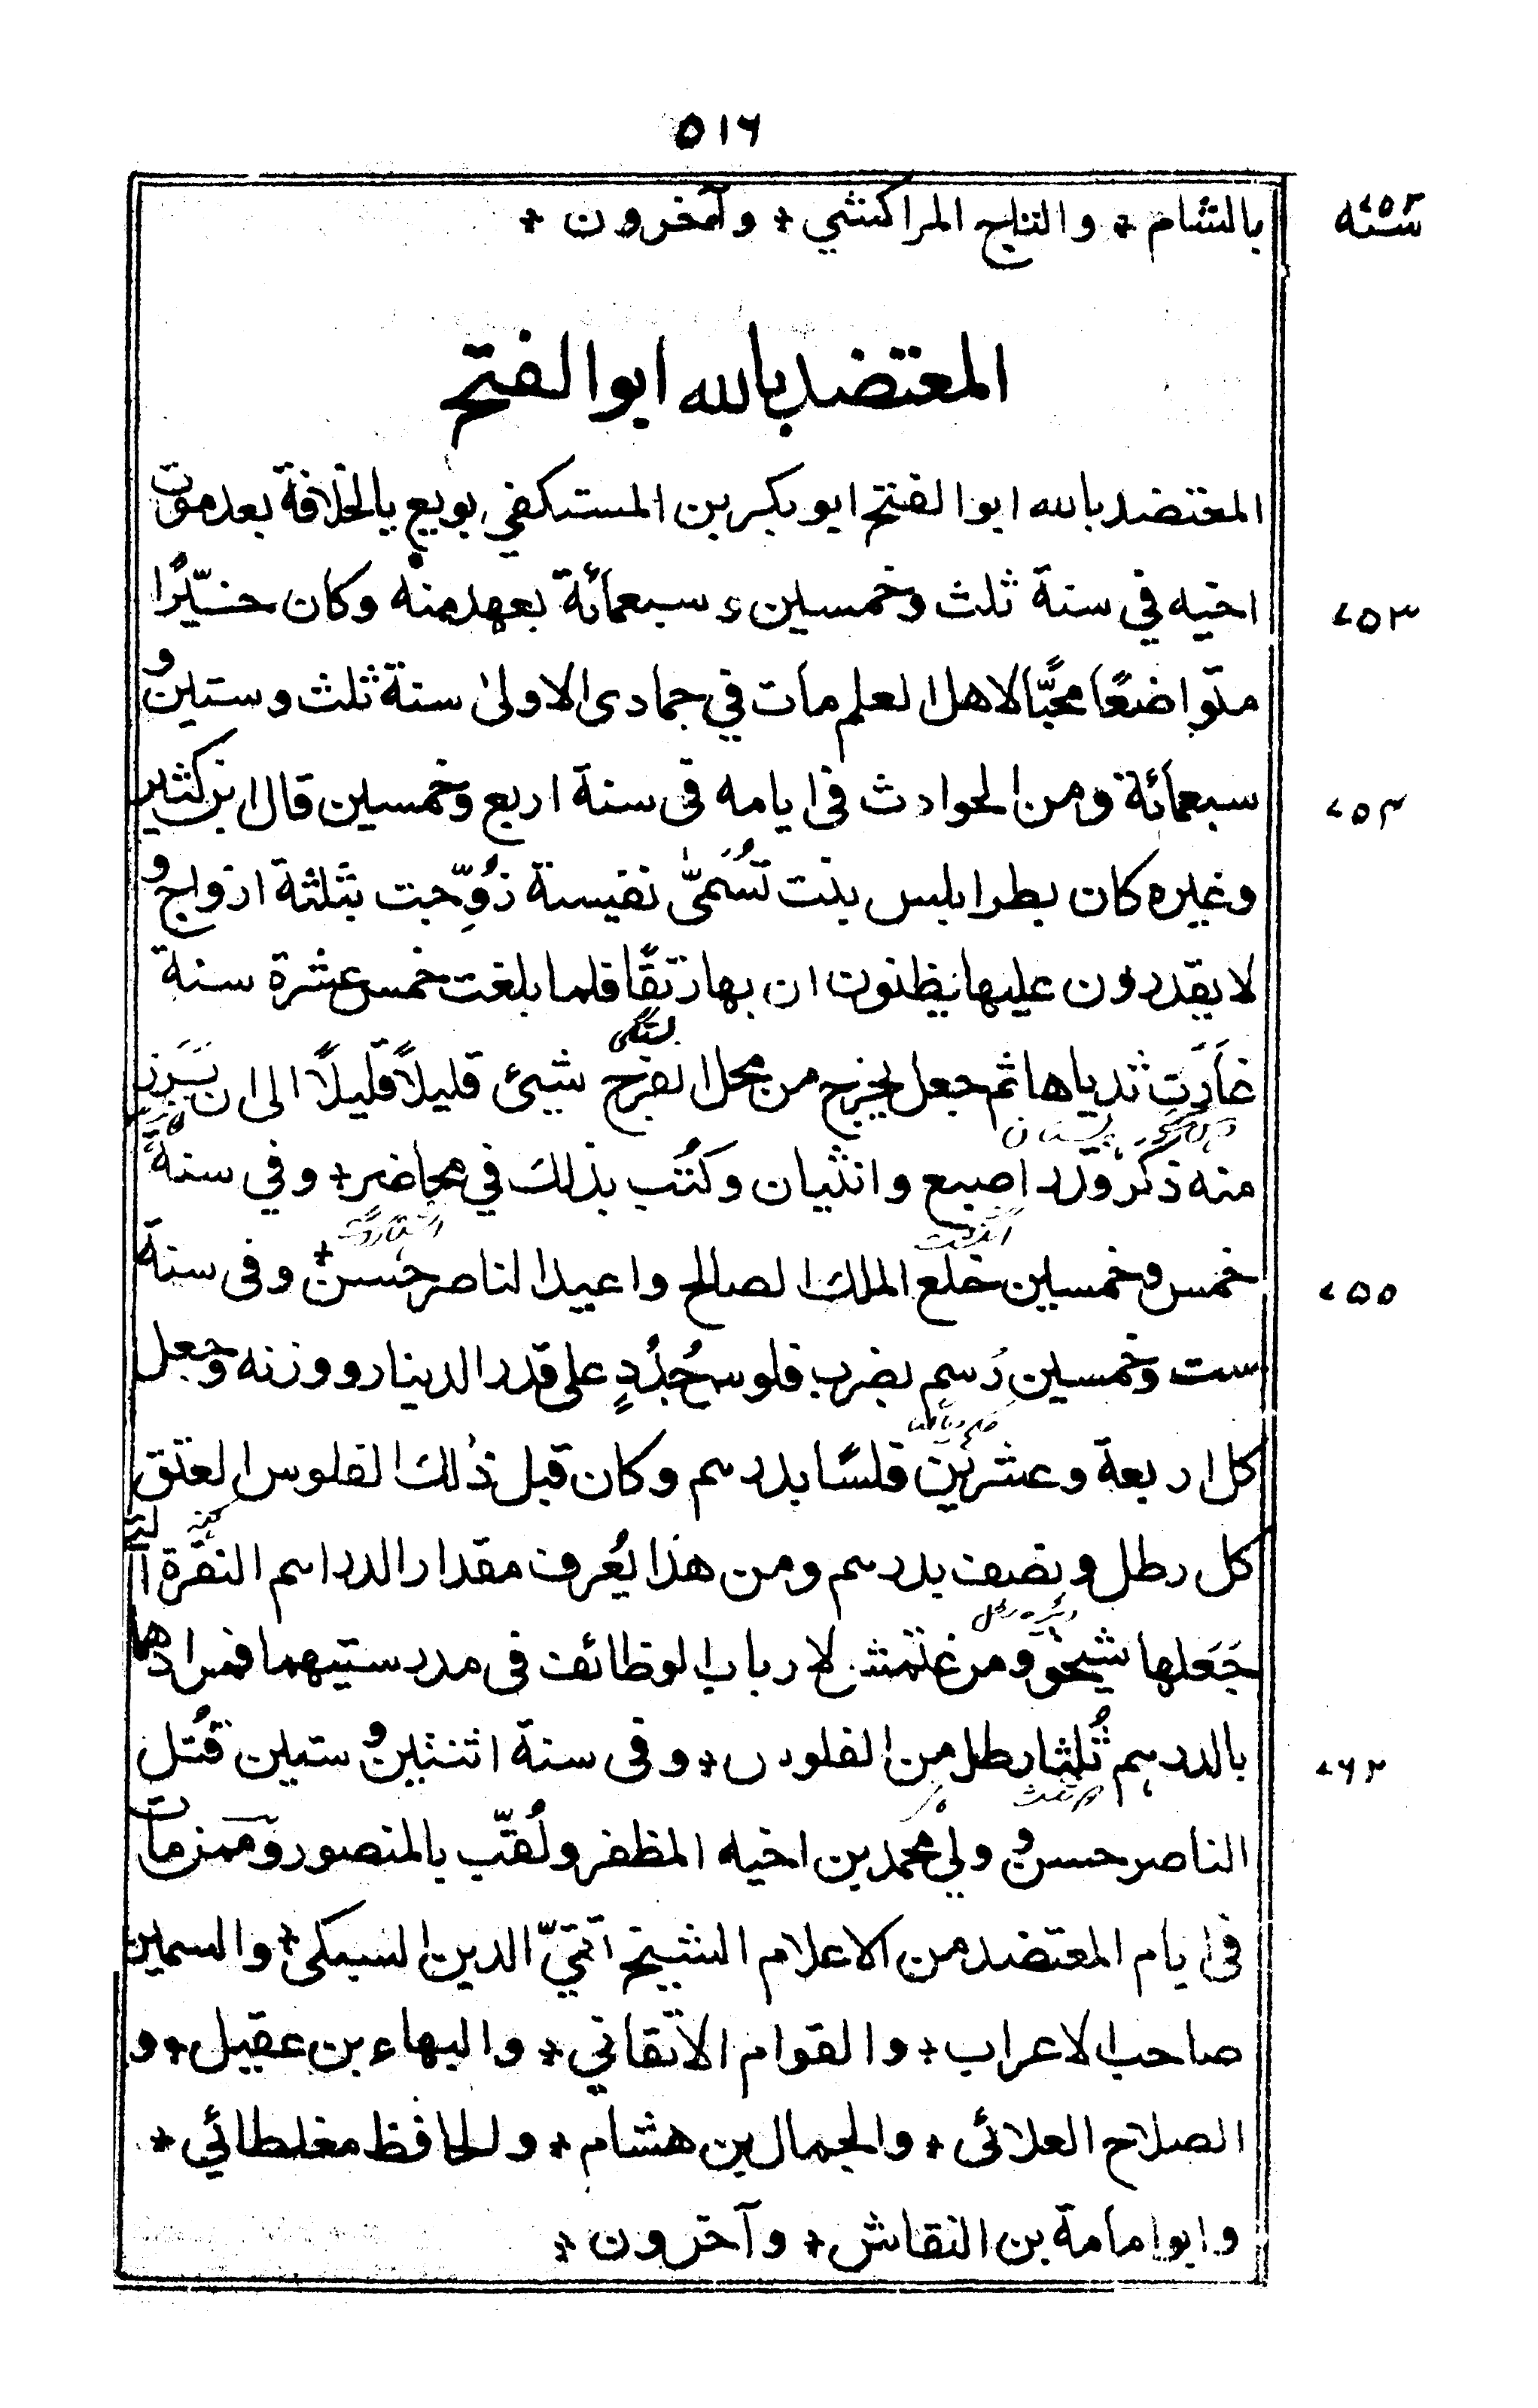 ٥١٦
بالشام ٭ والتاج المراكشي ٭ وآخرون ٭
سنه ٧٥٢
المعتضد بالله ابو الفتح
المعتضد بالله ابو الفتح ابو بكر بن المستكفي بويع بالخلافة بعد موت
اخيه في سنة ثلث وخمسين و سبعمائة بعهد منه وكان خيّرًا
٧٥٣
متواضعًا محبًّا لاهل العلم مات في جمادى الاولىٰ سنة ثلث وستين و
سبعمائة ومن الحوادث في ايامه في سنة اربع وخمسين قال ابن كثير
٧٥٤
وغيره كان بطرابلس بنت تُسَمىّٰ نفيسة زُوِّجت بثلثة ازواج و
لا يقدرون عليها يظنون ان بها رتقًا فلما بلغت خمس عشرة سنة
بستگى
غارَت ثدياها ثم جعل يخرج من محل الفرج شيئ قليلاً قليلاً الى ان بَرَز
پستان
منه ذكر قدر اصبع وانثيان وكُتب بذلك في محاضر ٭ وفي سنة
انگشت
خمس وخمسين خلع الملك الصالح واعيد الناصر حسن ٭ وفى سنة
٧٥٥
ست وخمسين رُسم بضرب فلوس جُدُدٍ على قدر الدينار ووزنه وجعل
كل اربعة وعشرين فلسًا بدرهم وكان قبل ذٰلك الفلوس العتق
كهنه
كل رطل ونصف بدرهم ومن هذا يُعرف مقدار الدراهم النقرة التي
جَعَلها شيخو ومرغتمش لارباب الوظائف فى مدرستيهما فمرادهما
بالدرهم ثُلثا رطل من الفلوس ٭ وفى سنة اثنتين و ستين قُتل
٧٦٢
الناصر حسن و ولي محمد بن اخيه المظفر ولُقّب بالمنصور وممن مات
في ايام المعتضد من الاعلام الشيخ تقيّ الدين السبكى ٭ والسمين
صاحب الاعراب ٭ والقوام الاتقاني ٭ والبهاء بن عقيل ٭ و
الصلاح العلائى ٭ والجمال بن هشام ٭ والحافظ مغلطائي ٭
وابو امامة بن النقاش ٭ وآخرون ٭